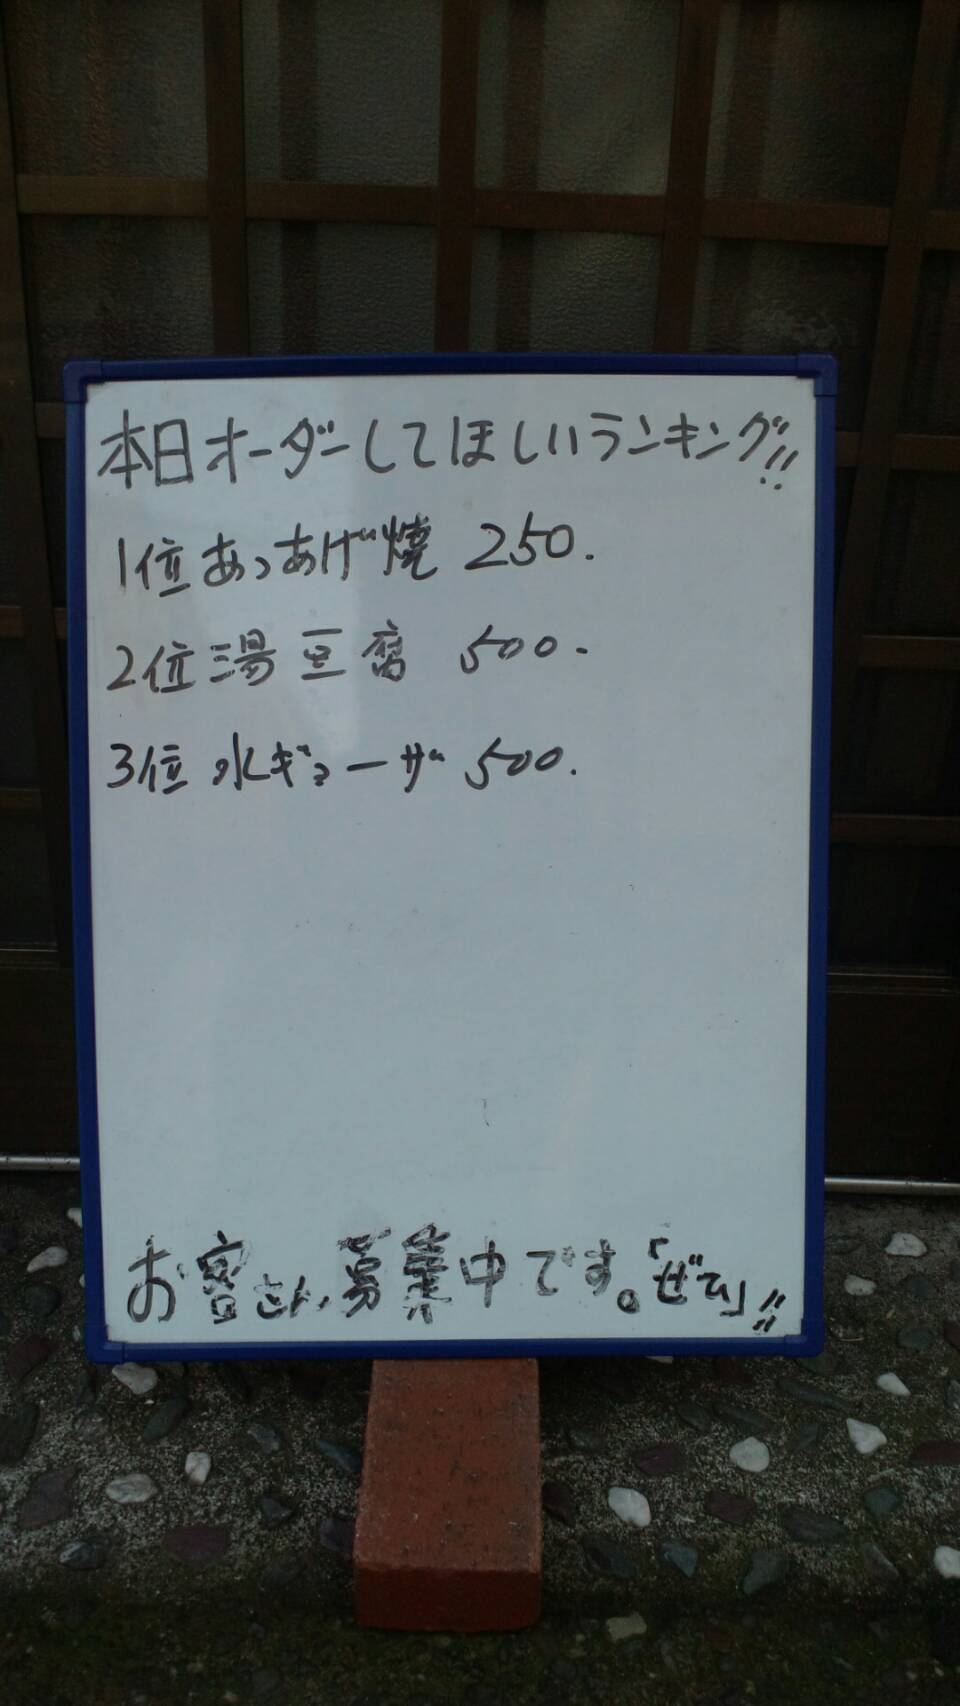 本日オーダーしてほしいランキング!!
1位あつあげ焼 250.
2位湯豆腐 500.
3位水ギョーザ 500.
お客さん、募集中です。「ぜひ」!!